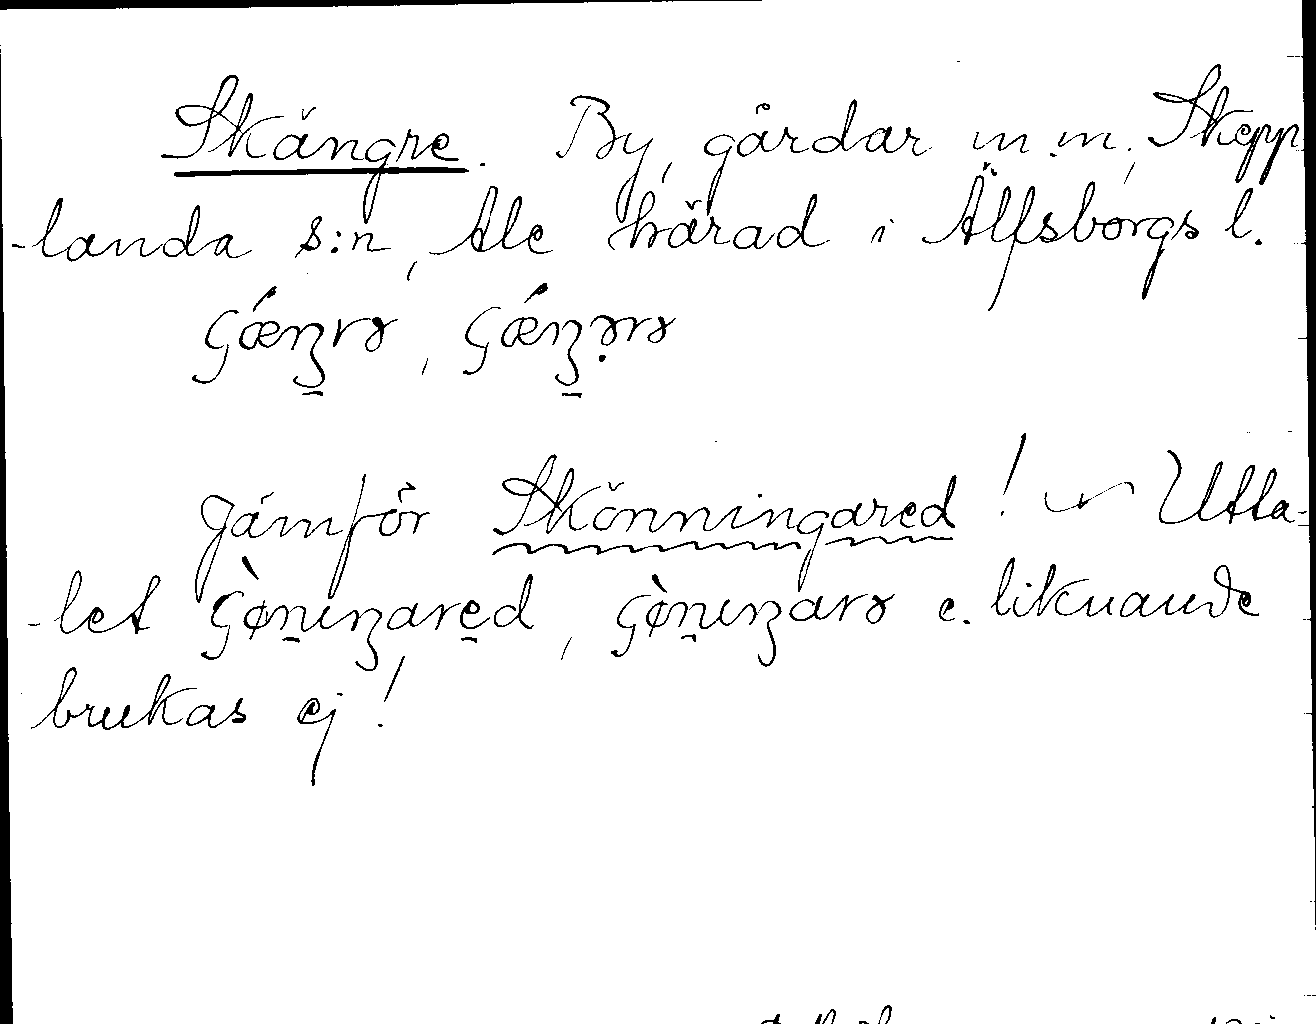 Skängre. By, gårdar m.m., Skepp
-landa s:n, Ale härad i Älfsborgs l.
ʂǽŋrɤ, ʂǽŋ̣ərɤ
Jämför Skönningared! ~ Utta-
-let ʂø̀nıŋared, ʂø̀nıŋarɤ e. liknande
brukas ej!